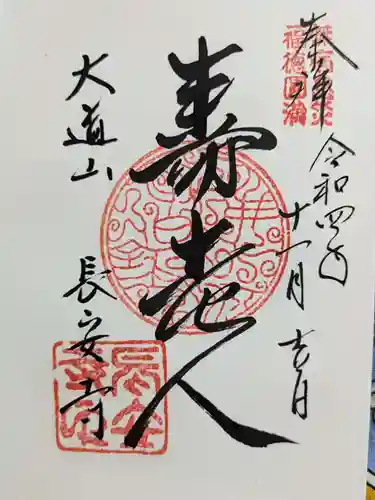 奉拝
令和四年
十一月吉日
福徳圓満
寿老人
大道山
長安寺